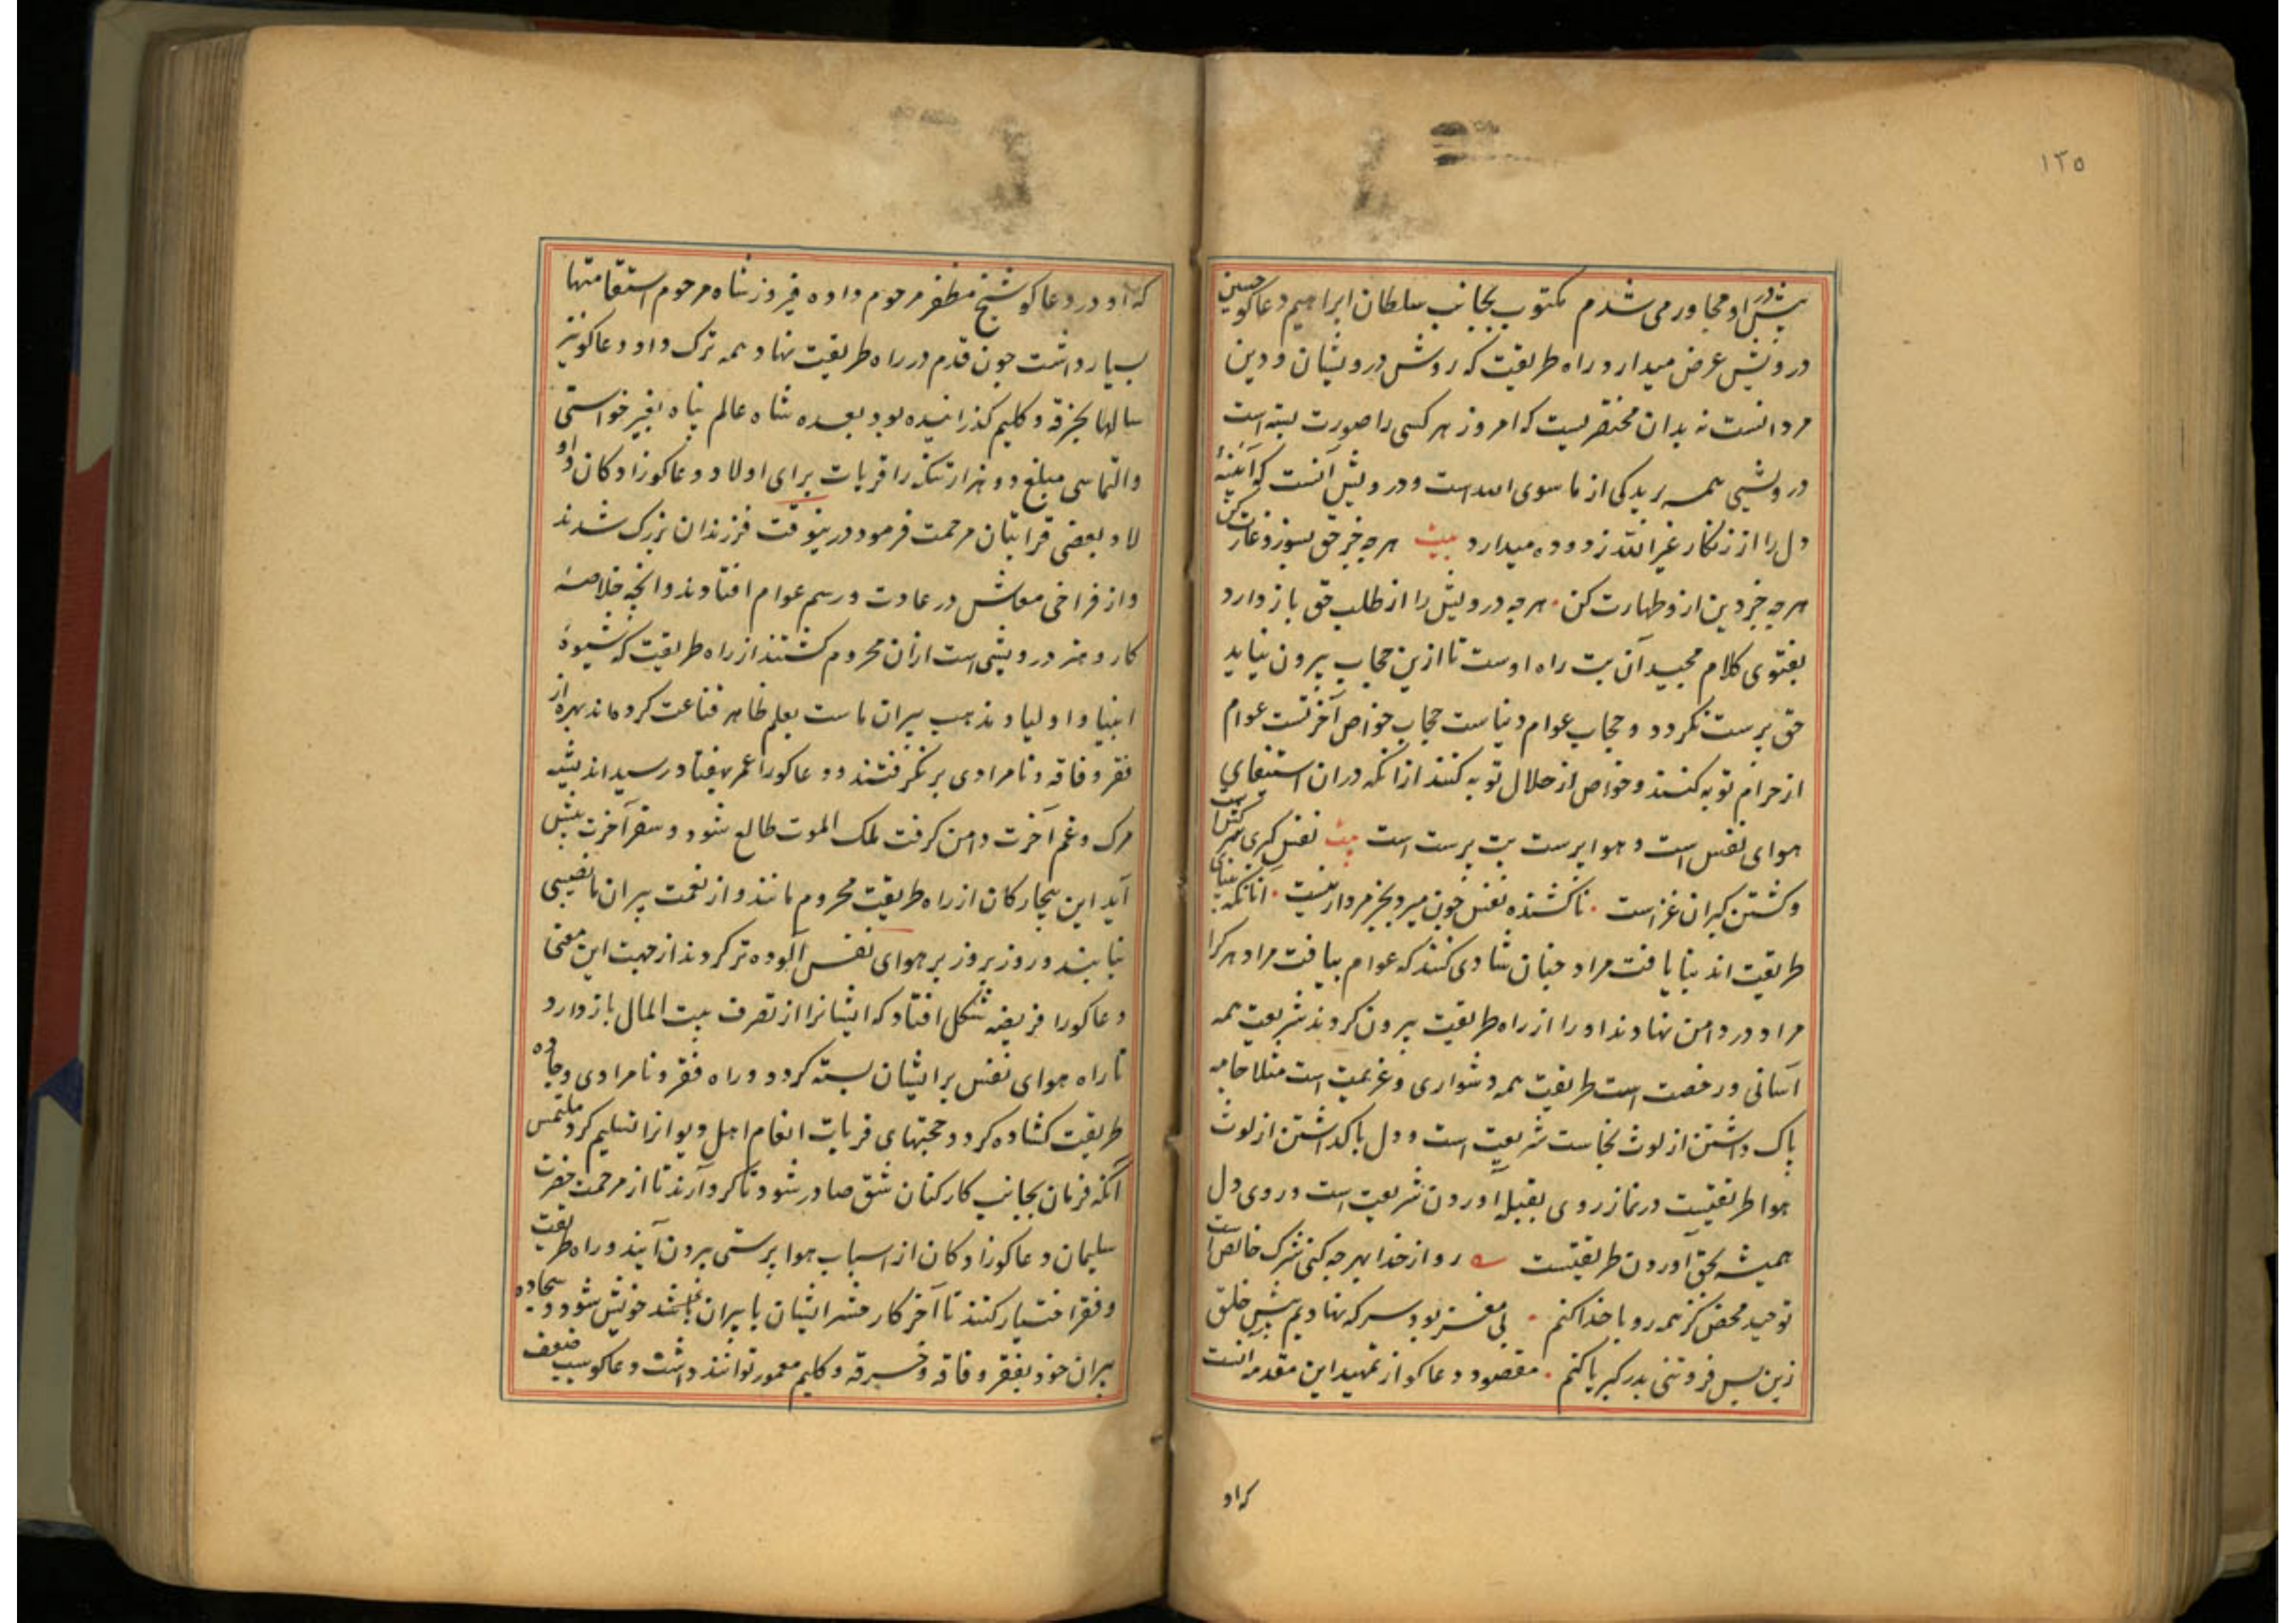 ۱۲۵
پیش در او مجاور می شدم مکتوب بجانب سلطان ابراهیم دعاکو حسین
درویش عرض میدارد راه طریقت که روش درویشان و دین
مردانست نه بدان مختصریست که امروز هر کسی را صورت بسته است
درویشی همه بریدکی از ما سوی الله است و درویش آنست که آئینهٔ
دل را از زنکار غیر الله زدوده میدارد بیت هر چه جز حق بسوز و غارت کن
هر چه جز دین ازو طهارت کن هر چه درویش را از طلب حق باز دارد
بفتوی کلام مجید آن بت راه اوست تا ازین حجاب بیرون نیاید
حق پرست نکردد و حجاب عوام دنیاست حجاب خواص آخرتست عوام
از حرام توبه کنند و خواص از حلال توبه کنند از آنکه در آن استیفای
هوای نفس است و هوا پرست بت پرست است بیت نفس کبری
و کشتن کبران غزاست ناکشته نفس چون میرد بجز مردار نیست آنانکه
طریقت اند بنا یافت مراد چنان شادی کنند که عوام بیافت مراد هر کرا
مراد در دامن نهادند او را از راه طریقت بیرون کردند شریعت همه
آسانی و رخصت است طریقت همه دشواری و عزیمت است مثلا جامه
پاک داشتن از لوث نجاست شریعت است و دل پاکداشتن از لوث
هوا طریقتست در نماز روی بقبله آوردن شریعت است و روی دل
همیشه بحق آوردن طریقتست رو از خدا بهر چه کنی شرک خالص است
توحید محض کز همه رو با خدا کنم بی مغز بود سر که نهادیم پیش خلق
زین پس فروتنی بدر کبریا کنم مقصود دعاکو از تمهید این مقدمه آنست
که او
که او در دعاکو شیخ مظفر مرحوم داده فیروز شاه مرحوم استقامتها
بسیار داشت چون قدم در راه طریقت نهاد همه ترک داد و دعاکو نیز
سالها بخرقه و کلیم کذرانیده بود بعده شاه عالم پناه بغیر خواستی
و التماسی مبلغ دو هزار تنکه را قریات برای اولاد و دعاکوزادکان و او
لاد بعضی قرابتان مرحمت فرمود درینوقت فرزندان بزرک شدند
و از فراخی معاش در عادت و رسم عوام افتادند و انچه خلاصهٔ
کار و هنر درویشی است از آن محروم کشتند از راه طریقت که شیوهٔ
انبیا و اولیا و مذهب پیران ماست بعلم ظاهر قناعت کرده ماند بهره از
فقر و فاقه و نامرادی برنکرفتند و دعاکو را عمر بهفتاد رسید اندیشه
مرک و غم آخرت دامن کرفت ملک الموت طالع شود و سفر آخرت پیش
آید این بیچارکان از راه طریقت محروم مانند و از نعمت پیران ما نصیبی
نیابند و روز بروز بر هوای نفس آلوده تر کردند از جهت این معنی
دعاکو را فریضه مشکل افتاد که ایشانرا از تصرف بیت المال باز دارد
تا راه هوای نفس بر ایشان بسته کردد و راه فقر و نامرادی و جاده
طریقت کشاده کردد و حجتهای قریات انعام اهل دیوانرا تسلیم کرد ملتمس
آنکه فرمان بجانب کارکنان شق صادر شود تا کرد آرند تا از مرحمت حضرت
سلیمان دعاکوزادکان از اسباب هوا پرستی بیرون آیند و راه طریقت
و فقر اختیار کنند تا آخر کار حشر ایشان با پیران باشد خویش شود و سجاده
پیران خود بفقر و فاقه و خرقه و کلیم معمور توانند داشت دعاکو سبب ضعف